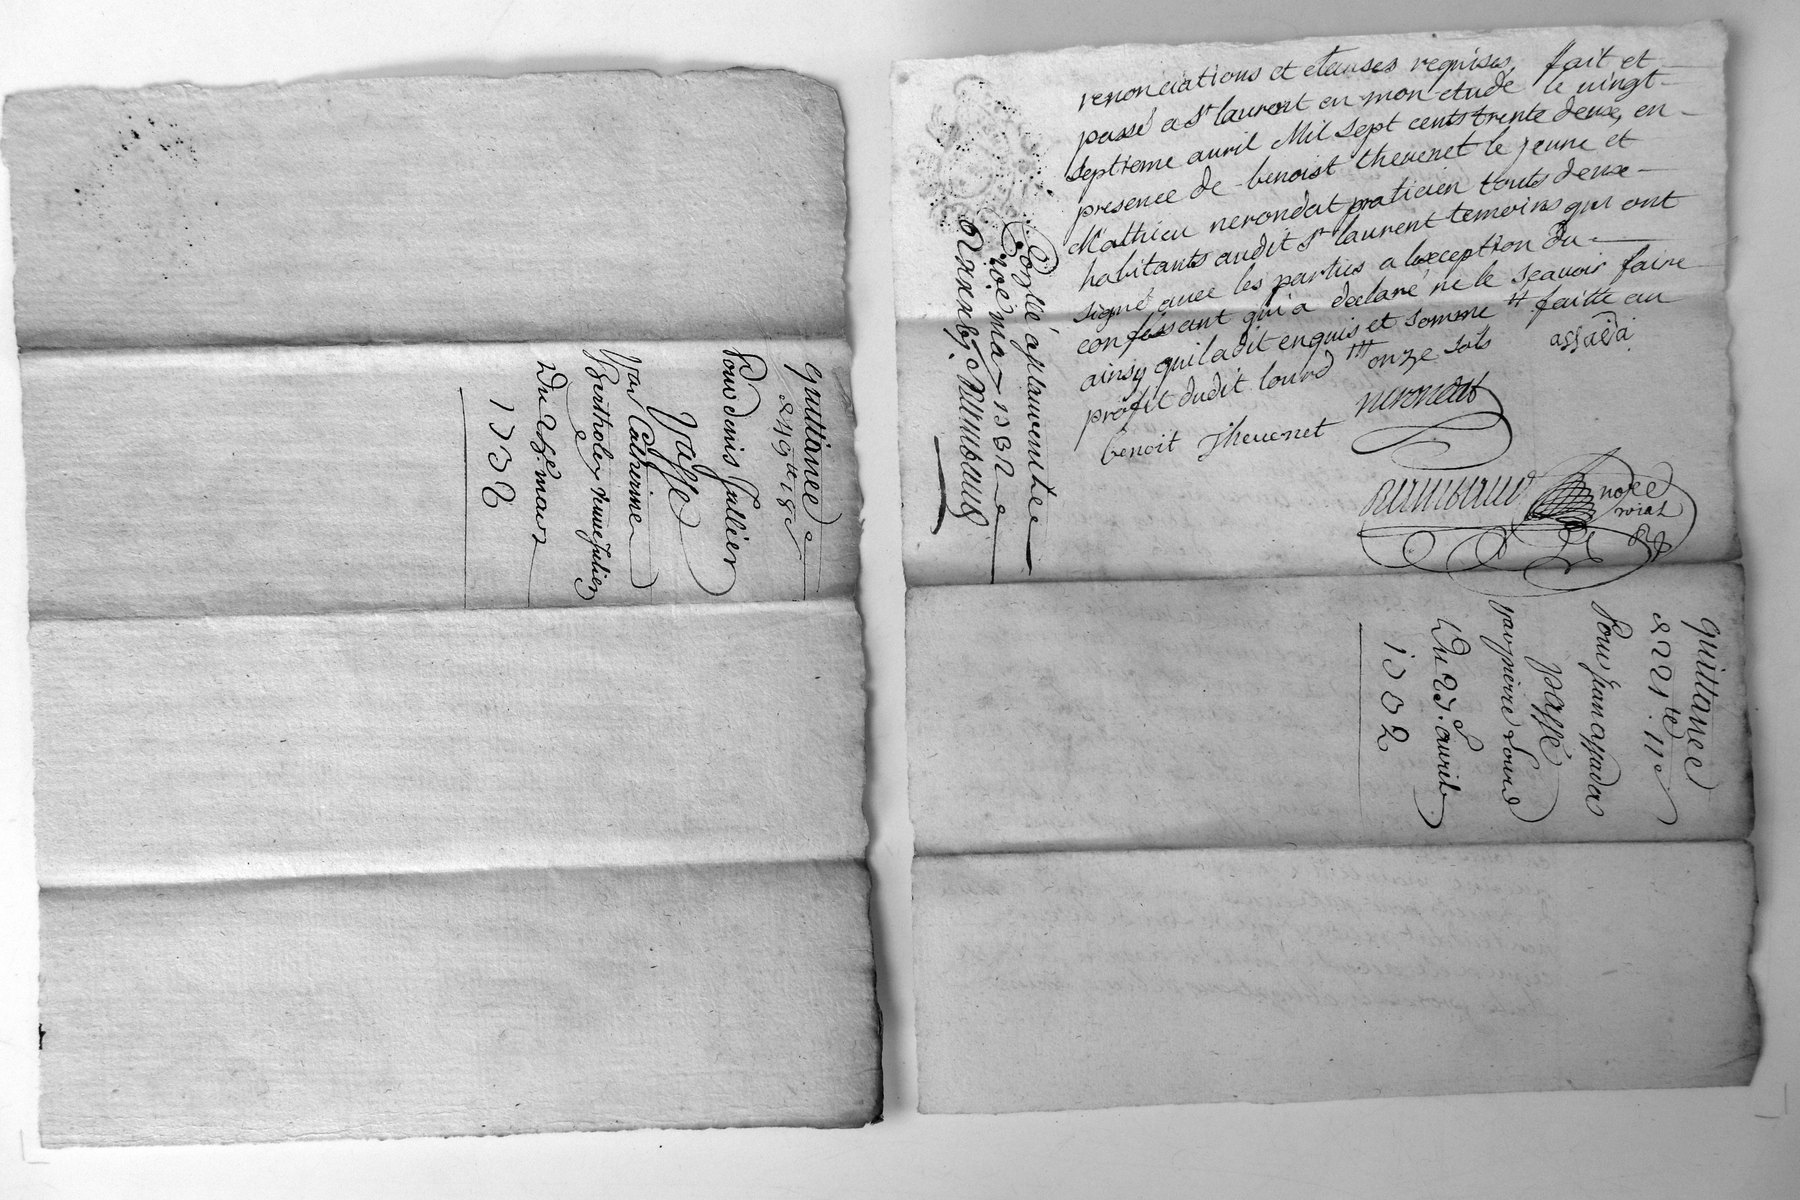 quittance
249 tt 18 s
Pour denis Jullien
Passé
par Catherine
Bertholey vieuve Julien
Du 25e mars
1732
renonciations et clauses requises, fait et
passé a St laurent en mon etude le vingt
septieme avril Mil sept cents trente deux, en
presence de benoist thevenet le jeune et
Mathieu nerondat praticien touts deux
habitants audit St laurent temoins qui ont
signé avec les parties a lexception du
confessant qui a declaré ne le sçavoir faire
ainsy quil a dit enquis et sommé tt faitte au
profit dudit lourd ttt onze sols assada
nerondat
benoit thevenet
notre
roial
Conllé a
may 1732
quittance
tt 11 s
Pour Jean assada
passé
par pierre Lourd
Du 27e avril
1732